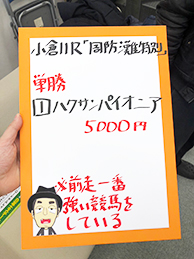 小倉11R「国防ジ難特別」
単勝
1 ハクサンパイオニア
5000円
※前走一番
強い競馬を
している